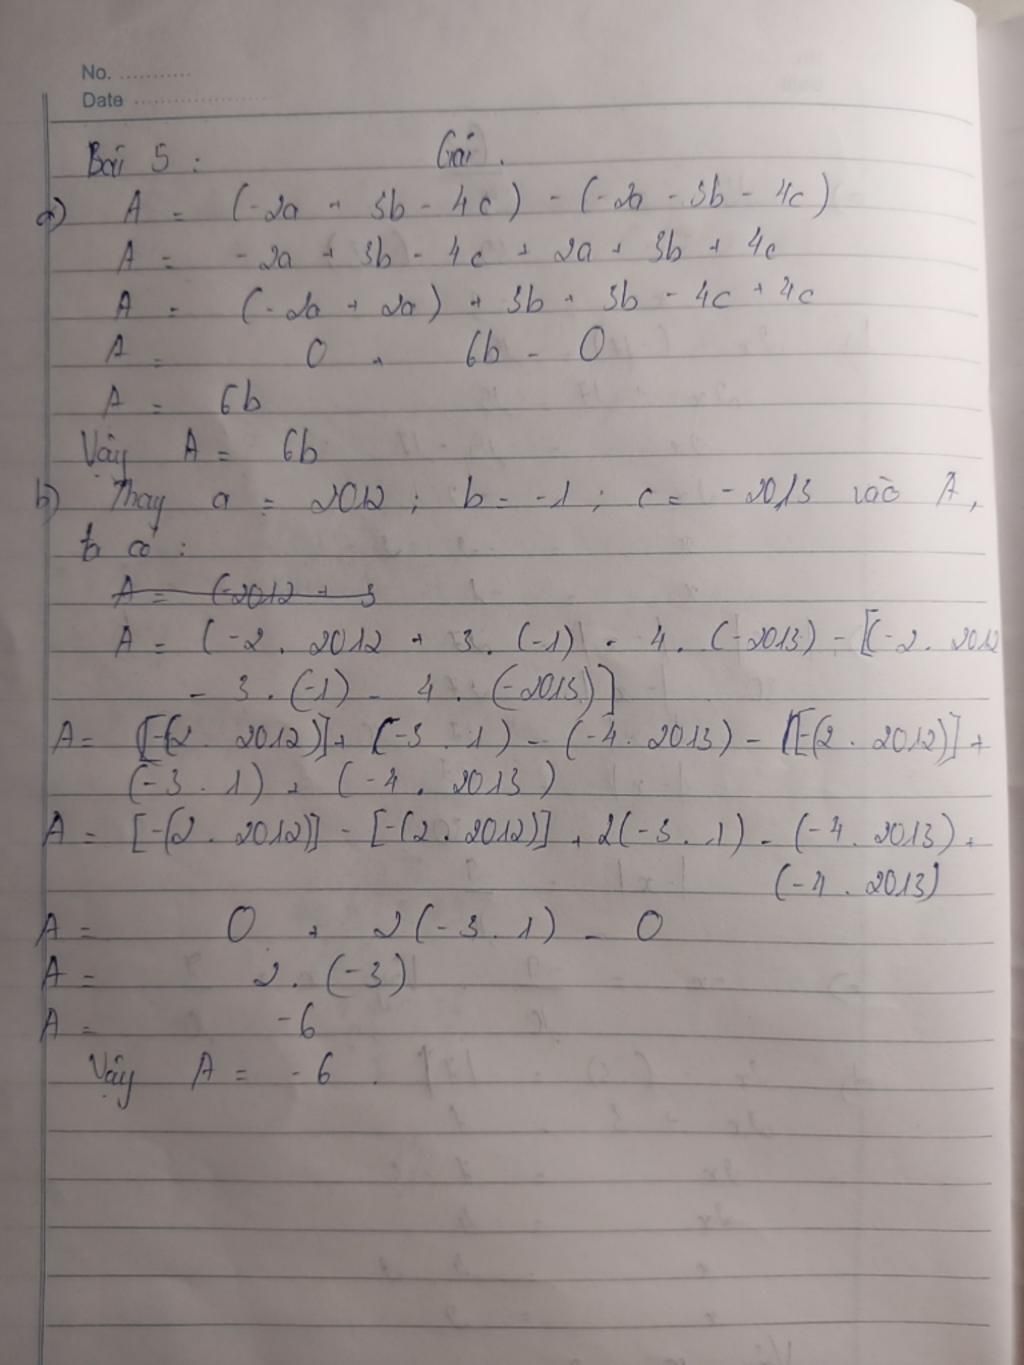 No. ..........
Date ....................
Bài 5 : Giải .
a) A = (-2a + 3b - 4c) - (-2a - 3b - 4c)
A = - 2a + 3b - 4c + 2a + 3b + 4c
A = (-2a + 2a) + 3b + 3b - 4c + 4c
A = 0 + 6b - 0
A = 6b
Vậy A = 6b
b) Thay a = 2012 ; b = -1 ; c = -2013 vào A,
ta có :
A = (-2012 + 3
A = (-2 . 2012 + 3 . (-1) - 4 . (-2013) - [(-2 . 2012
- 3 . (-1) - 4 . (-2013)]
A = [-(2 . 2012)] + (-3 . 1) - (-4 . 2013) - [[-(2 . 2012)] +
(-3 . 1) + (-4 . 2013)
A = [-(2 . 2012)] - [-(2 . 2012)] + 2(-3 . 1) - (-4 . 2013) +
(-4 . 2013)
A = 0 + 2(-3 . 1) - 0
A = 2 . (-3)
A = -6
Vậy A = -6 .